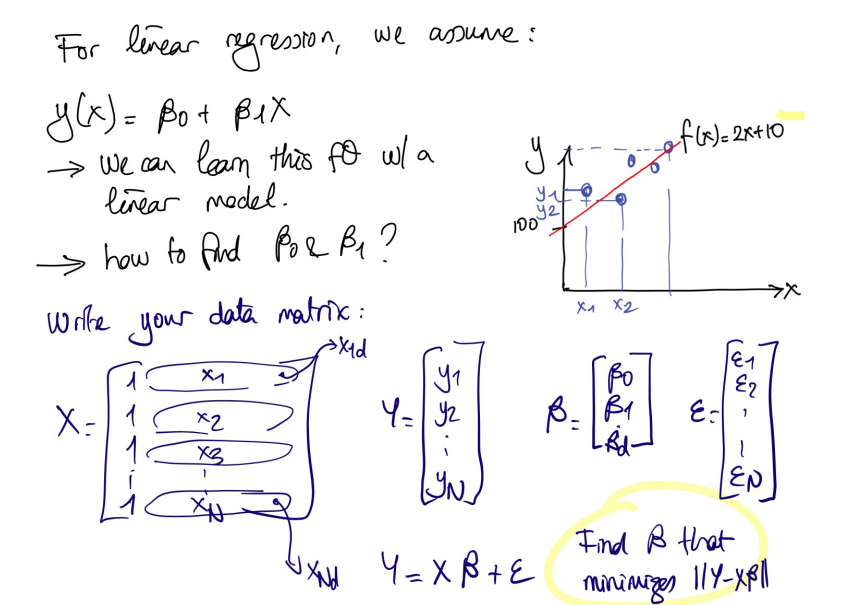 For linear regression, we assume:
y(x) = β0 + β1x
→ we can learn this f() w/ a
linear model.
→ how to find β0 & β1?
f(x)=2x+10
y
y1
y2
100
x1 x2
x
Write your data matrix:
x1d
X = [1 x1
1 x2
1 x3
⋮ ⋮
1 xN]
xNd
Y = [y1
y2
⋮
yN]
β = [β0
β1
⋮
βd]
ε = [ε1
ε2
⋮
εN]
Y = Xβ + ε
Find β that
minimizes ||Y-Xβ||